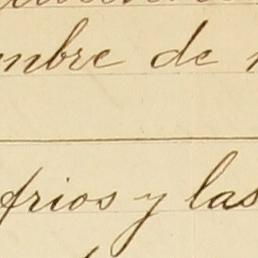 mbre de
frios y las